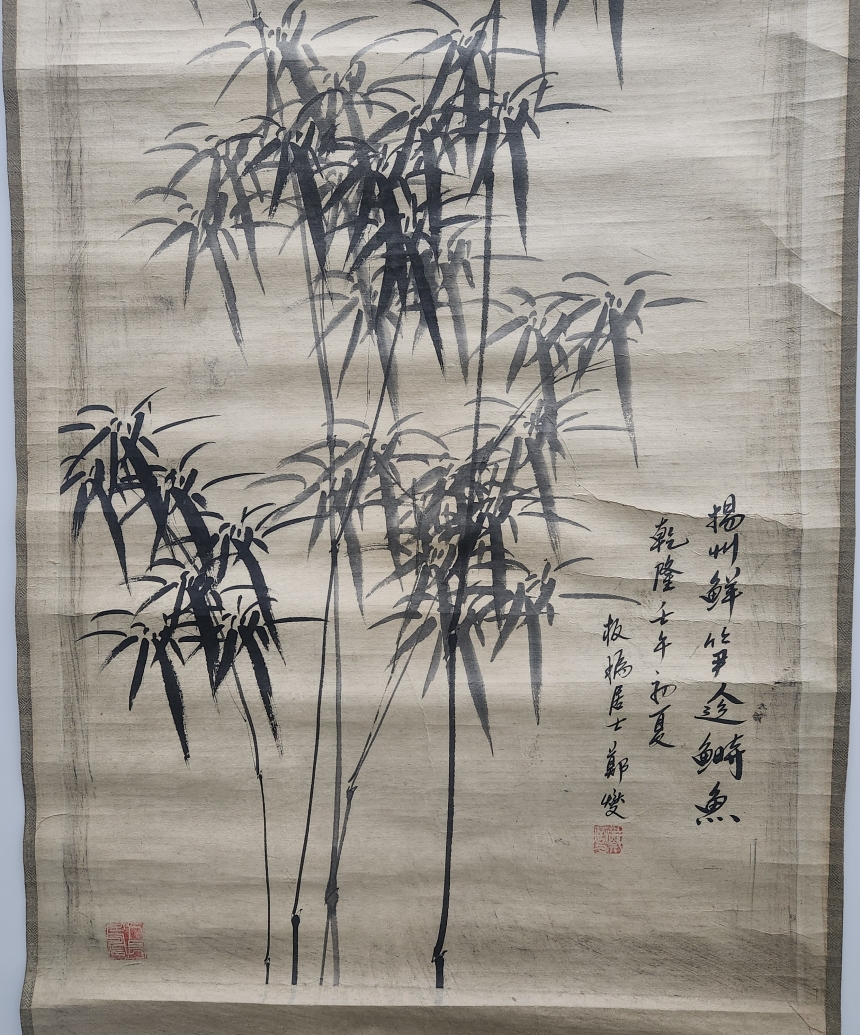 揚州鮮笋趁鰣魚
乾隆壬午初夏
板橋居士鄭燮